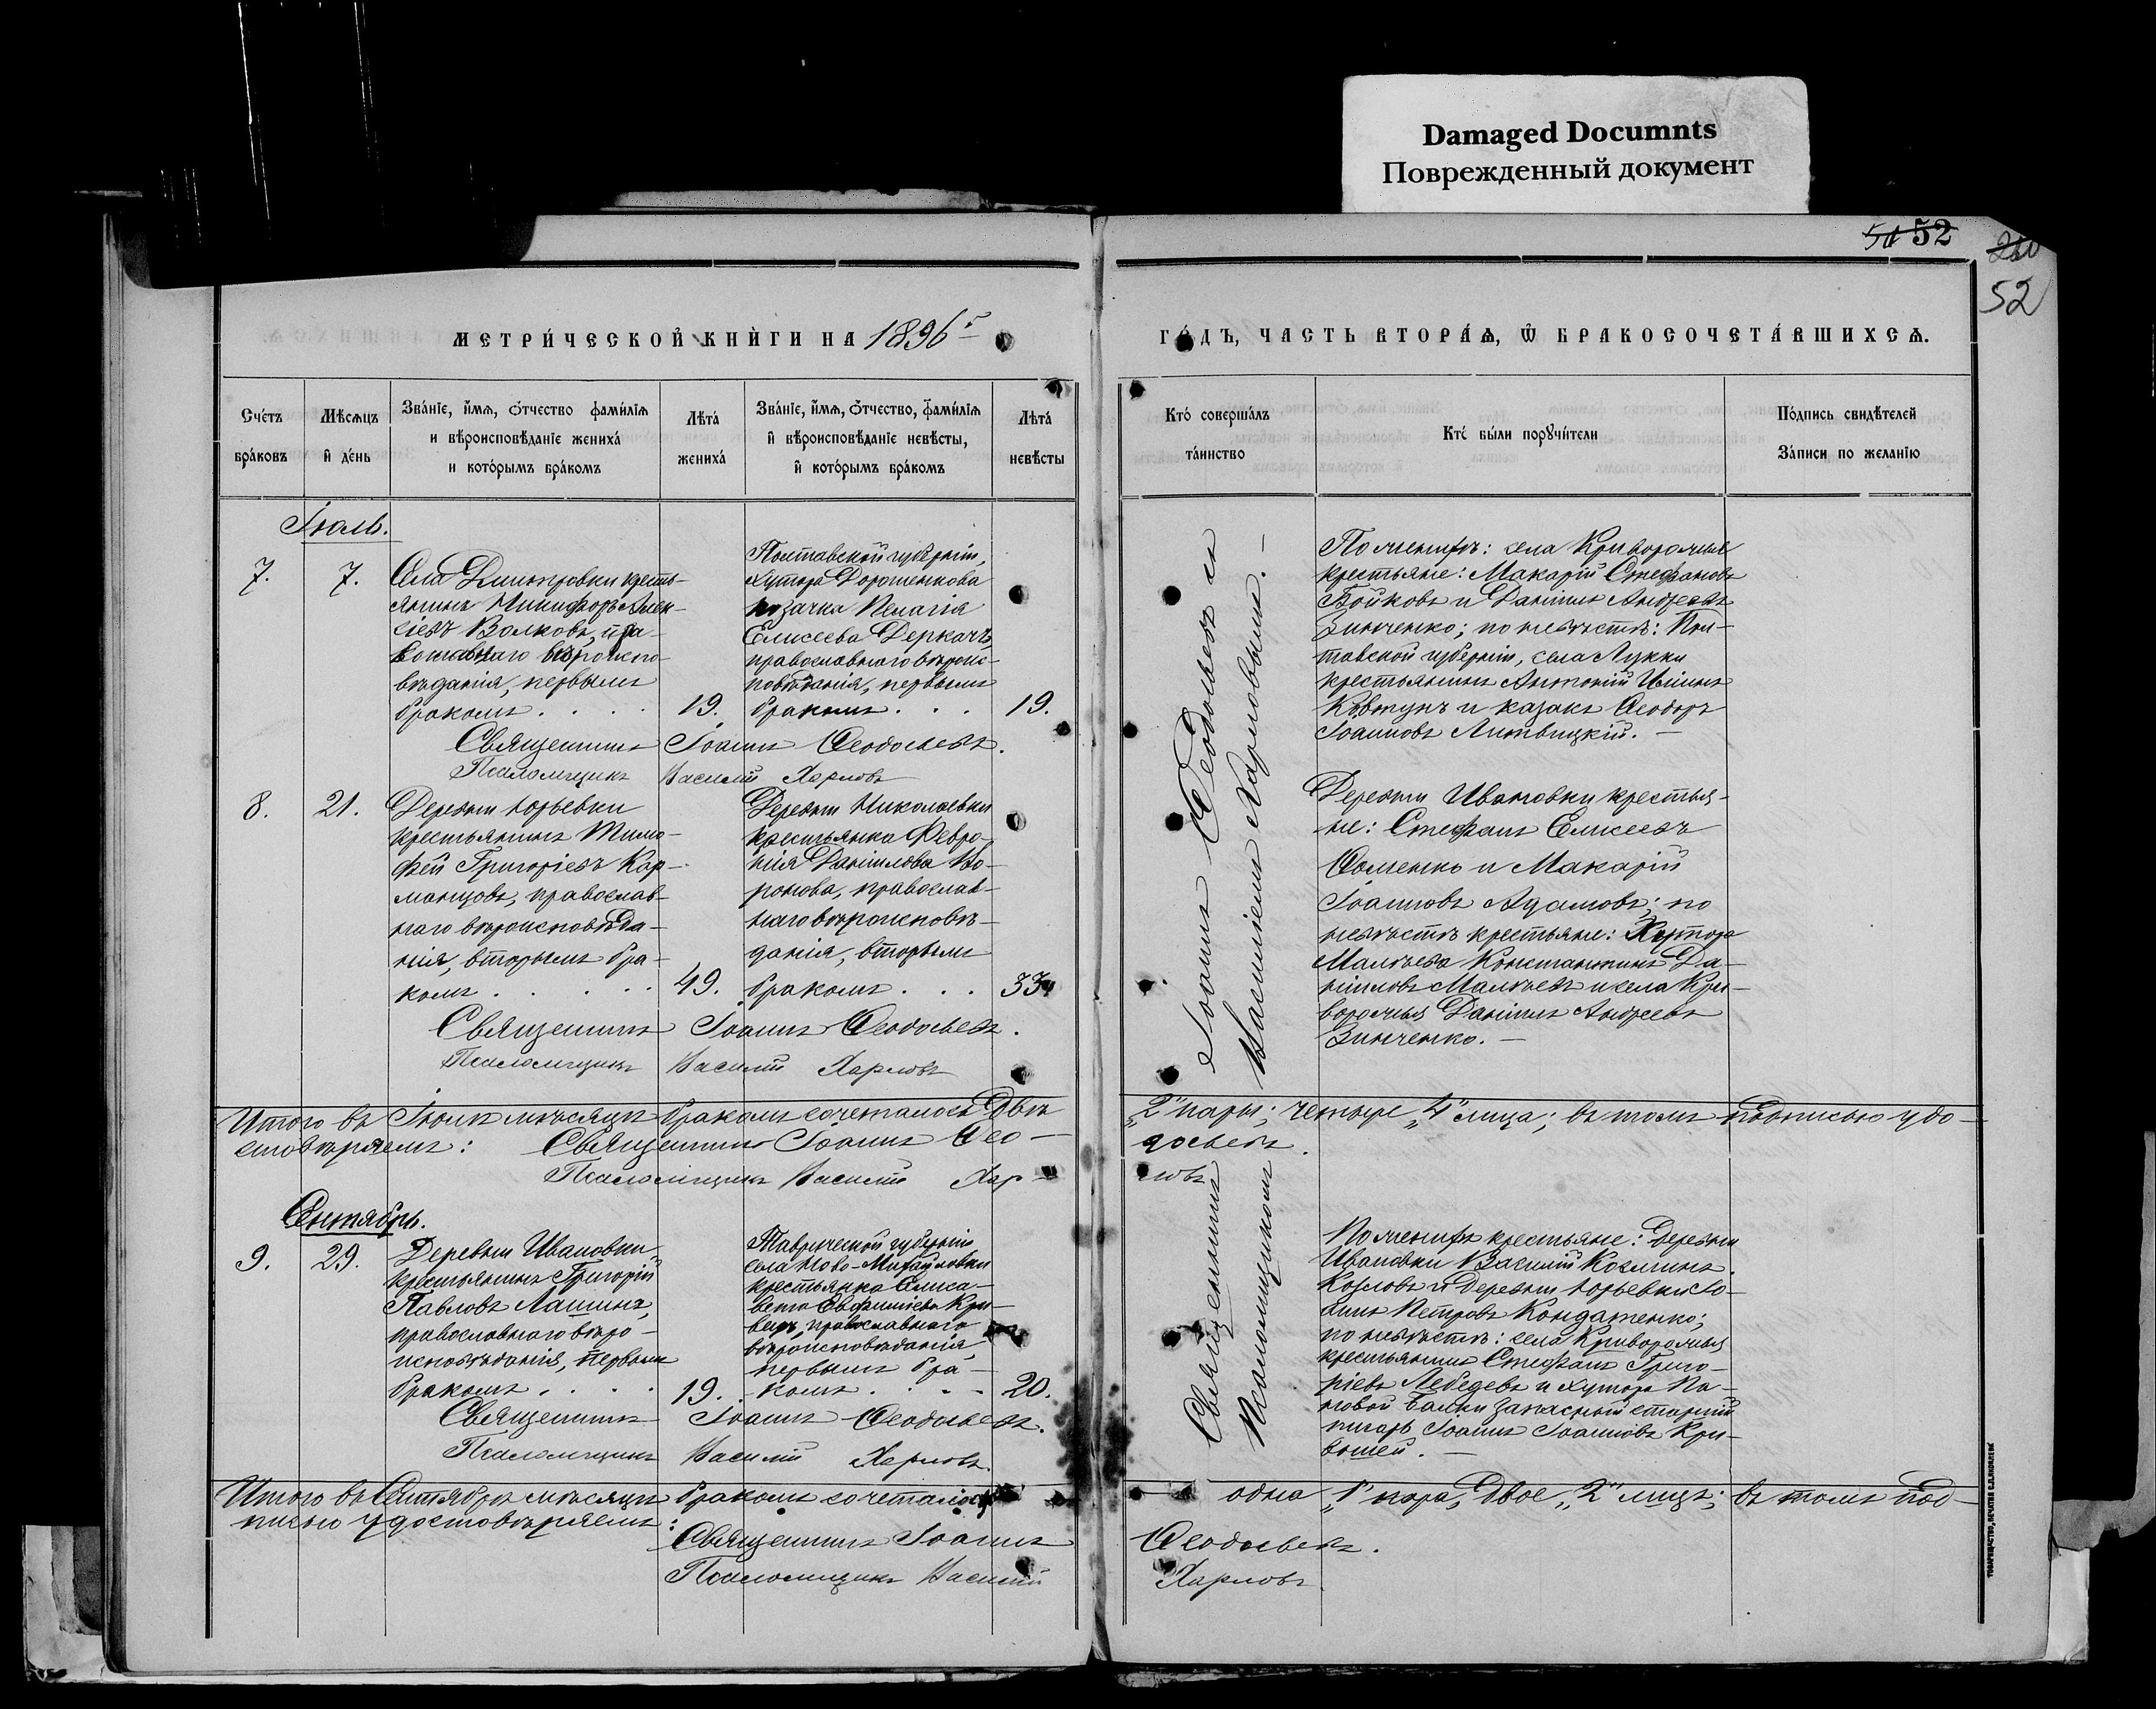 Damaged Documnts
Поврежденный документ
52
52
МЕТРИ́ЧЕСКОЙ КНИ́ГИ НА 1896
ГО́ДЪ, ЧАСТЬ ВТОРА́Ѧ, Ѽ БРАКОСОЧЕТА́ВШИХСѦ.
Сче́тъ
бра́ковъ
Мѣсѧцъ
и҆ де́нь
Зва́нїе, и҆́мѧ, ѻ҆́тчество фами́лїѧ
и вѣроисповѣ́данїе жениха́
и кото́рымъ бра́комъ
Лѣта́
жениха́
Зва́нїе, и҆́мѧ, ѻ҆́тчество, фами́лїѧ
и҆ вѣроисповѣ́данїе невѣ́сты,
и҆ кото́рымъ бра́комъ
Лѣта́
невѣ́сты
Кто́ соверша́лъ
та́инство
Кто́ бы́ли порꙋчи́тели
По́дпись свидѣ́телей
За́писи по жела́нїю
Іюль.
7.
7.
Села Дмитровки кресть-
янинъ Никифоръ Алек-
сіевъ Волковъ, пра-
вославнаго вѣроиспо-
вѣданія, первымъ
бракомъ . . . .
19.
Полтавской губерніи,
хутора Дорошенкова
козачка Пелагія
Елисеева Деркачъ,
православнаго вѣроис-
повѣданія, первымъ
бракомъ . . .
19.
Священникъ Іоаннъ Ѳеодосьевъ.
Псаломщикъ Василій Харловъ
По женихѣ: села Криворожья
крестьяне: Макарій Стефановъ
Бойковъ и Даніилъ Андреевъ
Зинченко; по невѣстѣ: Пол-
тавской губерніи, села Лукки
крестьянинъ Антоній Ильинъ
Ковтунъ и казакъ Ѳеодоръ
Іоанновъ Литвицкій. —
8.
21.
Деревни Юрьевки
крестьянинъ Тимо-
фей Григоріевъ Кар-
манцовъ, православ-
наго вѣроисповѣда-
нія, вторымъ бра-
комъ . . . . .
49.
Деревни Николаевки
крестьянка Февро-
нія Даніилова Во-
ронова, православ-
наго вѣроисповѣ-
данія, вторымъ
бракомъ . . .
33
Священникъ Іоаннъ Ѳеодосьевъ.
Псаломщикъ Василій Харловъ
Деревни Ивановки крестья-
не: Стефанъ Елисеевъ
Ѳоменко и Макарій
Іоанновъ Адамовъ; по
невѣстѣ крестьяне: Хутора
Малѣева Константинъ Да-
ніиловъ Малѣевъ и села Кри-
ворожья Даніилъ Андреевъ
Зинченко. —
Священникъ Іоаннъ Ѳеодосьевъ съ
Псаломщикомъ Василіемъ Харловымъ. —
Итого въ Іюлѣ мѣсяцѣ бракомъ сочеталось двѣ „2" пары; четыре „4" лица; въ томъ подписью удо-
стовѣряемъ: Священникъ Іоаннъ Ѳео- досьевъ.
Псаломщикъ Василій Хар- ловъ
Сентябрь.
9.
29.
Деревни Ивановки
крестьянинъ Григорій
Павловъ Лашинъ,
православнаго вѣро-
исповѣданія, первымъ
бракомъ . . . .
19.
Таврической губерніи
села Ново-Михайловки
крестьянка Елиса-
вета Евфиміева Кри-
вецъ, православнаго
вѣроисповѣданія,
первымъ бра-
комъ . . . .
20.
Священникъ Іоаннъ Ѳеодосьевъ.
Псаломщикъ Василій Харловъ.
По женихѣ крестьяне: Деревни
Ивановки Василій Козминъ
Козловъ и деревни Юрьевки Іо-
аннъ Петровъ Кондатенко;
по невѣстѣ: села Криворожья
крестьянинъ Стефанъ Григо-
ріевъ Лебедевъ и хутора Па-
новой Балки запасный старшій
писарь Іоаннъ Іоанновъ Кри-
вошей. —
Итого въ Сентябрѣ мѣсяцѣ бракомъ сочеталось одна „1" пара, двое „2" лицъ; въ томъ под-
писью удостовѣряемъ:
Священникъ Іоаннъ Ѳеодосьевъ.
Псаломщикъ Василій Харловъ.